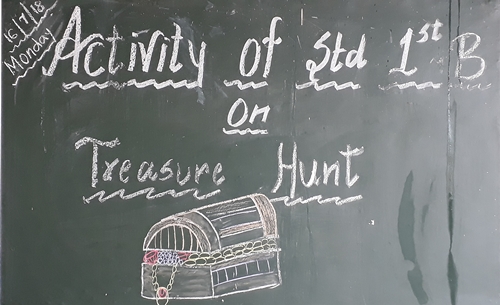 16/7/18
Monday
Activity of Std 1st B
on
Treasure Hunt